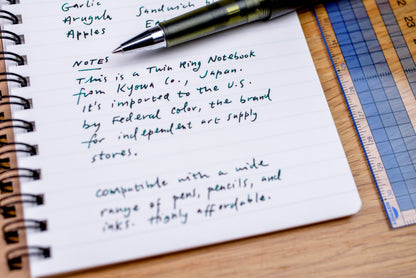 Garlic
Arugula
Apples
Sandwich
NOTES
This is a Twin Ring Notebook
from Kyowa Co., Japan.
It's imported to the U.S.
by Federal Color, the brand
for independent art supply
stores.
Compatible with a wide
range of pens, pencils, and
inks. Highly affordable.